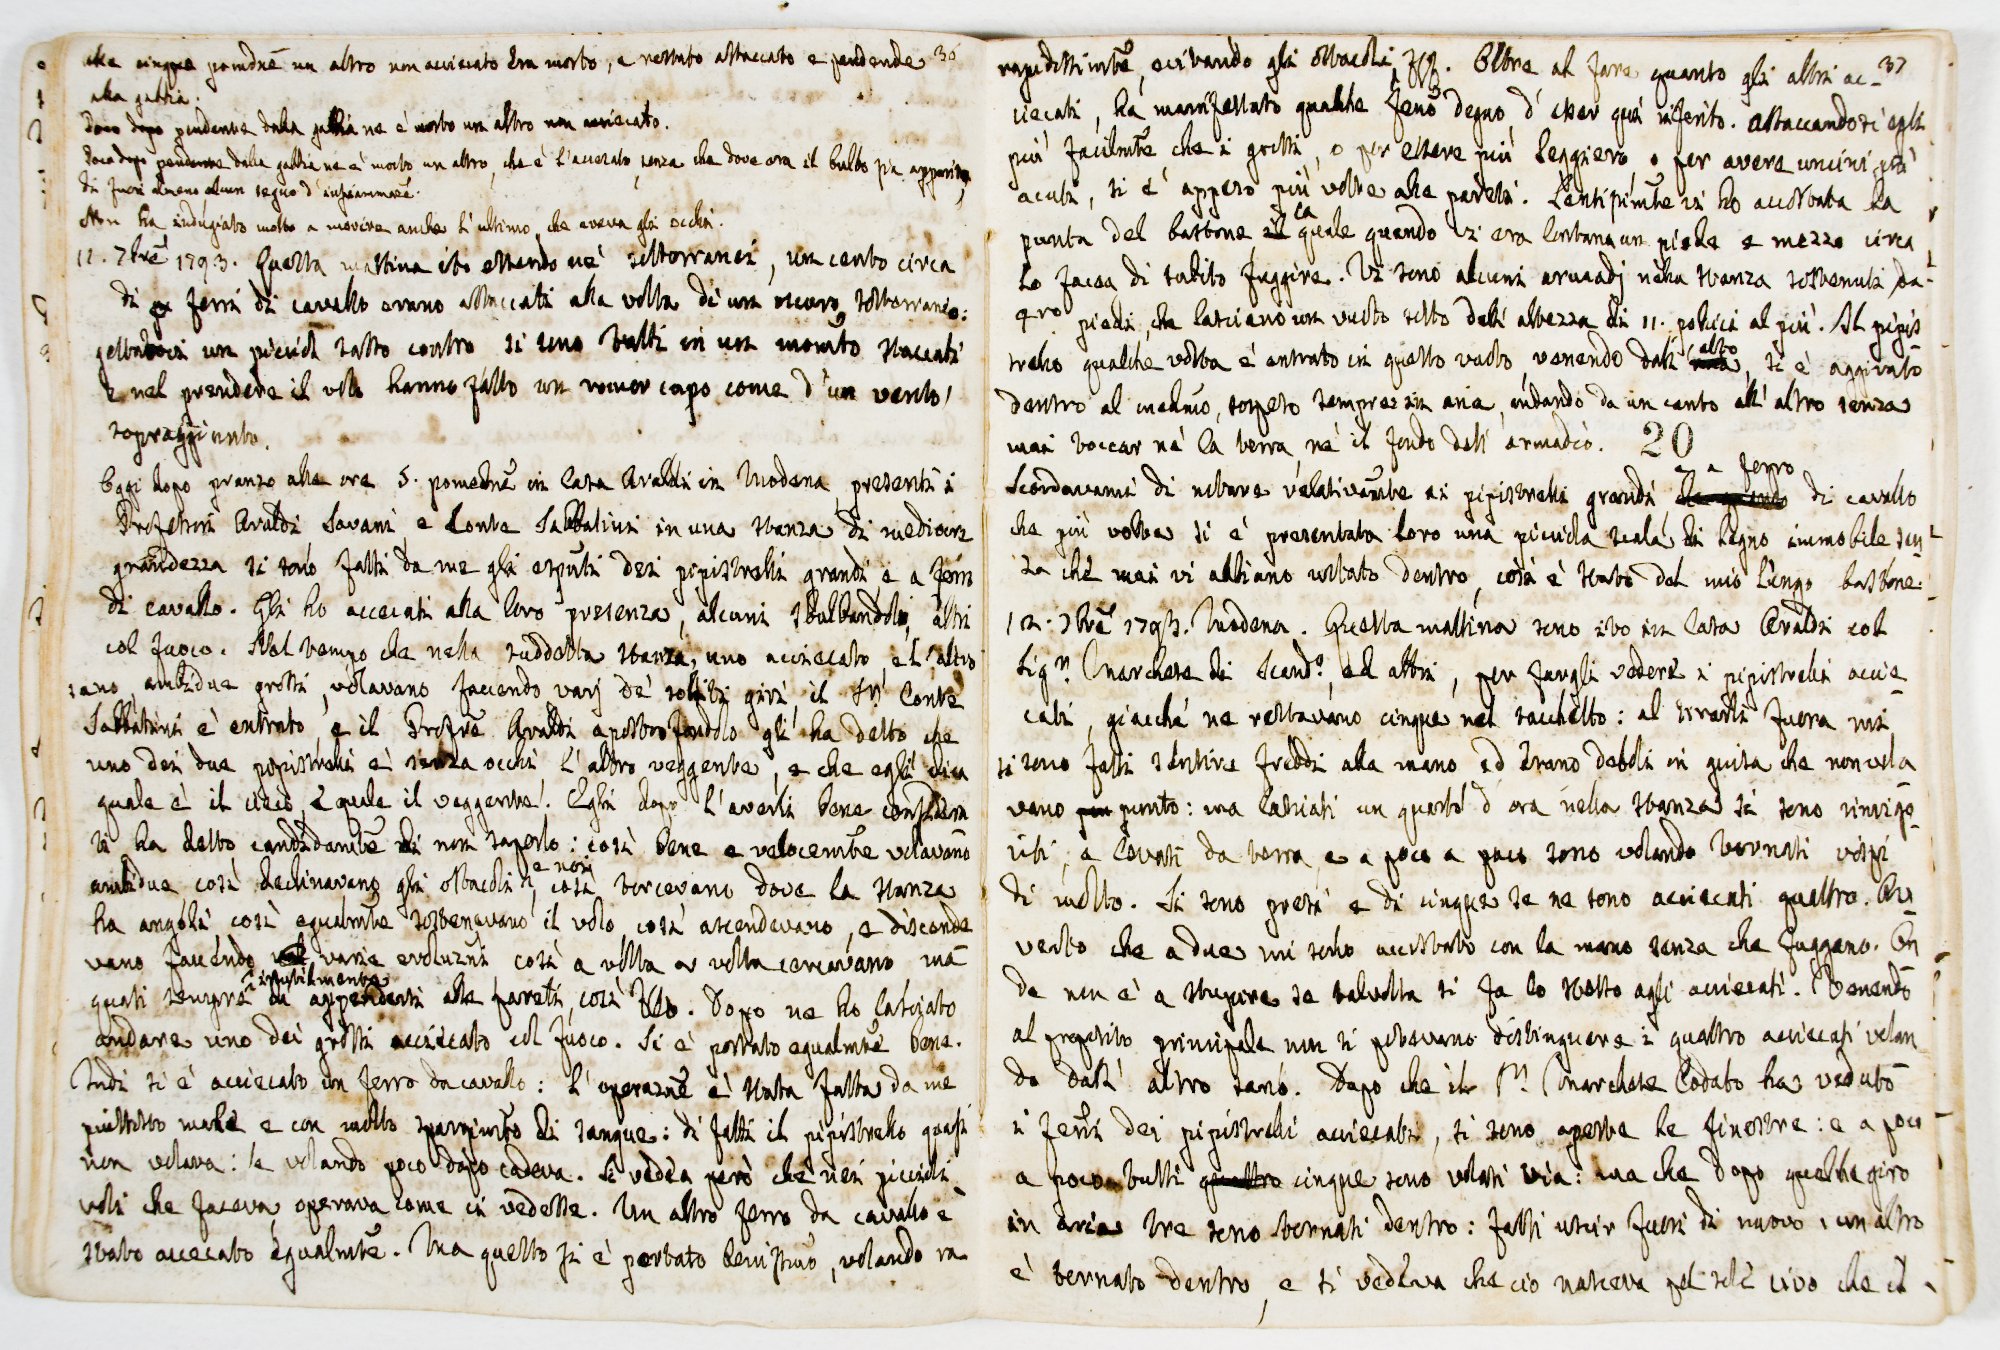 alle cinque pomdne un altro non acciecato era morto, e restato attaccato e pendente 36
alla gabbia.
Poco dopo pendente dalla gabbia ne è morto un altro non acciecato.
Poco dopo pendente dalla gabbia ne è morto un altro, che è l'accecato, senza che dove era il bulbo sia apparito,
di fuori almeno alcun segno d'infiammaze.
Non ha indugiato molto a morire anche l'ultimo, che aveva gli occhi.
11. 7bre 1793. Questa mattina ito essendo ne' sotterranei, un cento circa
di ferri di cavallo erano attaccati alla volta di un oscuro sotterraneo:
gettatovi un picciol sasso contro si sono tutti in un momto staccati
e nel prendere il volo hanno fatto un romor cupo come d'un vento
sopraggiunto.
Oggi dopo pranzo alle ore 5. pomedne in Casa Araldi in Modena, presenti i
Professori Araldi, Savani, e Conte Sabbatini in una stanza di mediocre
grandezza si sono fatti da me gli esputi dei pipistrelli grandi, e a ferro
di cavallo. Gli ho accecati alla loro presenza, alcuni sbulbandoli, altri
col fuoco. Nel tempo che nella suddetta stanza, uno acciecato e l'altro
sano, ambidue grossi, volavano facendo varj de' soliti giri, il Sr Conte
Sabbatini è entrato, e il Profre Araldi apostrofandolo gli ha detto che
uno dei due pipistrelli è senza occhi, l'altro veggente, e che egli dica
quale è il cieco, e quale il veggente. Egli dopo l'averli bene considera
ti ha detto candidamte di non saperlo: così bene e velocemte volavano
ambidue, così declinavano gli ostacoli, e noi, così torcevano dove la stanza
ha angoli, così egualmte sostenevano il volo, così ascendevano, e discende
vano facendo varie evoluzni, così a volta a volta cercavano ma
quasi sempre inutilmente di appendersi alle pareti, così &c. Dopo ne ho lasciato
andare uno dei grossi acciecato col fuoco. Si è portato egualmte bene.
Indi si è acciecato un ferro da cavallo: l'operazne è stata fatta da me
piuttosto male e con molto sparpimto di sangue: di fatti il pipistrello quasi
non volava: se volando poco dopo cadeva. Si vedea però che nei piccioli
voli che faceva, operava come ci vedesse. Un altro ferro da cavallo è
stato accecato egualmte. Ma questo si è portato benissimo, volando ra
37
rapidissimte, evitando gli ostacoli, &c. Oltre al fare quanto gli altri ac-
ciecati, ha manifestato qualche feno degno d'esser quì riferito. Attaccandosi egli
più facilmte che i grossi, o per essere più leggiero, o per avere uncini più
acuti, si è appeso più volte alle pareti. Lentissimte vi ho accostata la
punta del bastone il la quale quando vi era lontana un piede e mezzo circa
lo facea di subito fuggire. Vi sono alcuni armadj nella stanza sostenuti da
4ro piedi, che lasciano un vuoto sotto dell'altezza di 11. pollici al più. Il pipis
trello qualche volta è entrato in questo vuoto venendo dall'alto, si è aggirato
dentro al medmo, sospeso sempre in aria, andando da un canto all'altro senza
mai toccar nè la terra, nè il fondo dell'armadio. 20
Scordavami di notare relativamte ai pipistrelli grandi, a ferro di cavallo
che più volte si è presentata loro una picciola scala di legno immobile sen
za che mai vi abbiano urtato dentro, così è stato del mio lungo bastone.
12. 7bre 1793. Modena. Questa mattina sono ito in Casa Araldi col
Sigr. Marchese di Scand., ed altri, per fargli vedere i pipistrelli accie
cati, giacchè ne restavano cinque nel sacchetto: al tirarli fuora mi
si sono fatti sentire freddi alla mano ed erano deboli in guisa che non vola
vano punto: ma lasciati un quarto d'ora nella stanza si sono rinvigo
riti, e levati da terra, e a poco a poco sono volando tornati vispi
di molto. Si sono presi e di cinque se ne sono acciecati quattro. Av
verto che a due mi sono accostato con la mano senza che fuggano. On
de non è a stupire se talvolta si fa lo stesso agli acciecati. Venendo
al proposito principale non si potevano distinguere i quattro acciecati volan
do dall'altro sano. Dopo che il Sr Marchese lodato ha veduto
i feni dei pipistrelli acciecati, si sono aperte le finestre: e a poco
a poco tutti quattro cinque sono volati via: ma che dopo qualche giro
in aria tre sono tornati dentro: fatti uscir fuori di nuovo, un altro
è tornato dentro, e si vedeva che ciò nasceva pel sole vivo che il